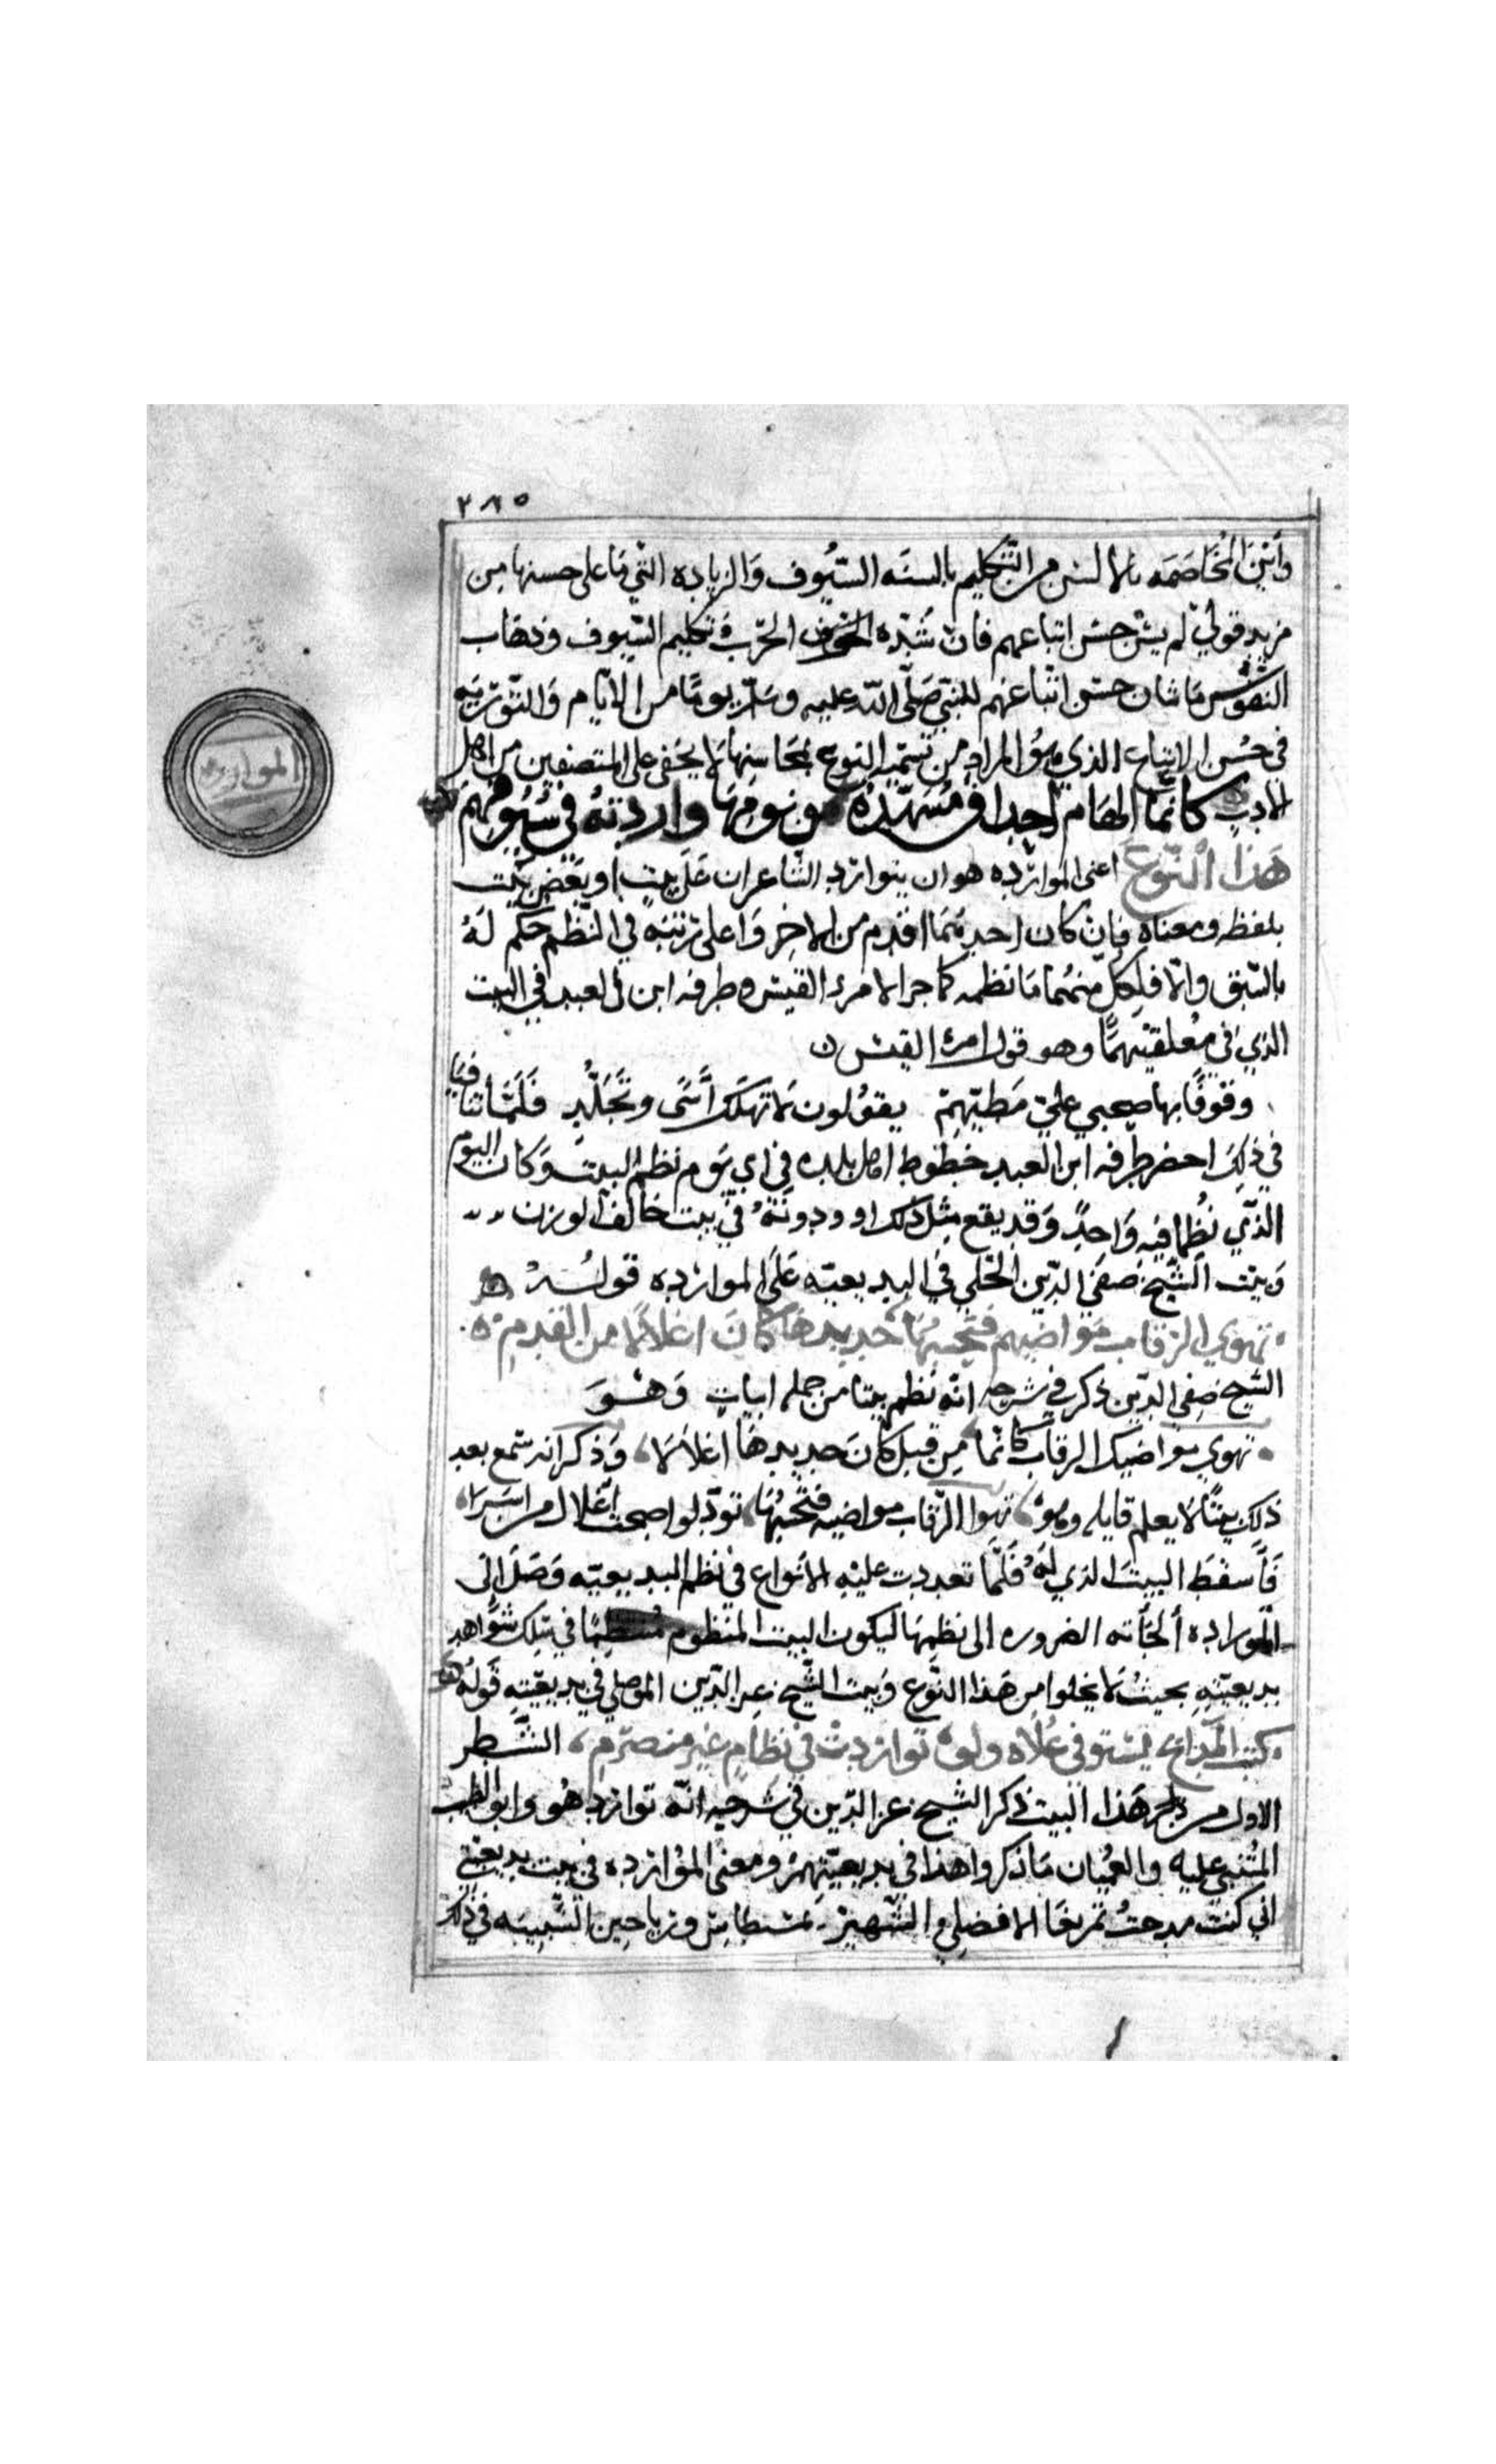 ٣٨٥
واين المخاصمه بالالسن من التكليم بالسنه السيوف والزياده التي ما على حسنها من
مزيد قولي لم يشن حسن اتباعهم فان شده الحرب وتكليم السيوف وذهاب
النفوس ما شان حسن اتباعهم للنبي صلى الله عليه وسلم يوما من الايام والتوريه
في حسن الاتباع الذي هو المراد من تسميه النوع محاسنها لا يخفى على المتصفين من اهل
الادب كانما الهام احداق مسهده من نومها واردته في سيوفهم
هذا النوع اعني المواردة هو ان يتوارد الشاعران على بيت او بعض بيت
بلفظه ومعناه فان كان احدهما اقدم من الاخر واعلى رتبه في النظم حكم له
بالسبق والا فلكل منهما ما نظمه كما جرا لامرء القيس وطرفه ابن العبد في البيت
الذي في معلقتيهما وهو قول امرء القيس
وقوفا بها صحبي علي مطيهم يقولون لا تهلك اسى وتجلد فلما تنافيا
في ذلك احضر طرفه ابن العبد خطوط اهل بلده في اي يوم نظم البيت وكان اليوم
الذي نظما فيه واحد وقد يقع مثل ذلك او ودونه في بيت خالف الوزن
وبيت الشيخ صفي الدين الحلي في البديعيه على المواردة قوله
تهوي الرقاب مواضيهم فتحسبها حديدها كان اغلالا من القدم
الشيخ صفي الدين ذكر في شرحه انه نظم بيتا من جملة ابيات وهو
تهوي مواضيك الرقاب كانما من قبل كان حديدها اغلالا وذكر انه سمع بعد
ذلك بيتا لا يعلم قايله وهو تهوا الرقاب مواضيه فتحسبها تود لو اصبحت اغلال من اسرا
فاسقط البيت الذي له فلما تعددت عليه الانواع في نظم البديعيه وصل الى
المواردة ألجأته الضروره الى نظمها ليكون البيت المنظوم منتظما في سلك شواهد
بديعيته بحيث لا يخلوا من هذا النوع وبيت الشيخ عز الدين الموصلي في بديعيته قوله
كبت المدايح تستوفي علاه ولو تواردت في نظام غير منصرم الشطر
الاول من هذا البيت ذكر الشيخ عز الدين في شرحه انه توارد هو وابو الطيب
المتنبي عليه والعميان ما ذكروا هذا في بديعيتهم ومعنى المواردة في بيت بديعيتي
اني كنت مدحت تمربغا الافضلي الشهير بمنطاش ورياحين الشبيبه في ذلك
المواردة